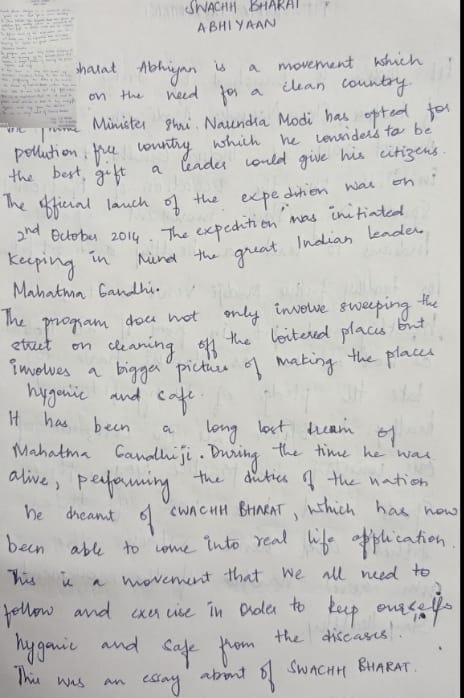 SWACHH BHARAT
ABHIYAAN
bharat Abhiyan is a movement which
on the need for a clean country.
Minister Shri. Narendra Modi has opted for
pollution free country which he considers to be
the best gift a leader could give his citizens.
The official lauch of the expedition was on
2nd October 2014. The expedition was initiated
Keeping in Mind the great Indian leader,
Mahatma Gandhi.
The program does not only involve sweeping the
street on cleaning off the loitered places but
involves a bigger picture of making the places
hygenic and safe.
It has been a long lost dream of
Mahatma Gandhiji. During the time he was
alive, performing the duties of the nation
he dreamt of SWACHH BHARAT, which has now
been able to come into real life application.
This is a movement that we all need to
follow and exercise in Order to keep ourselfs
hygenic and safe from the diseases!
This was an essay about of SWACHH BHARAT.